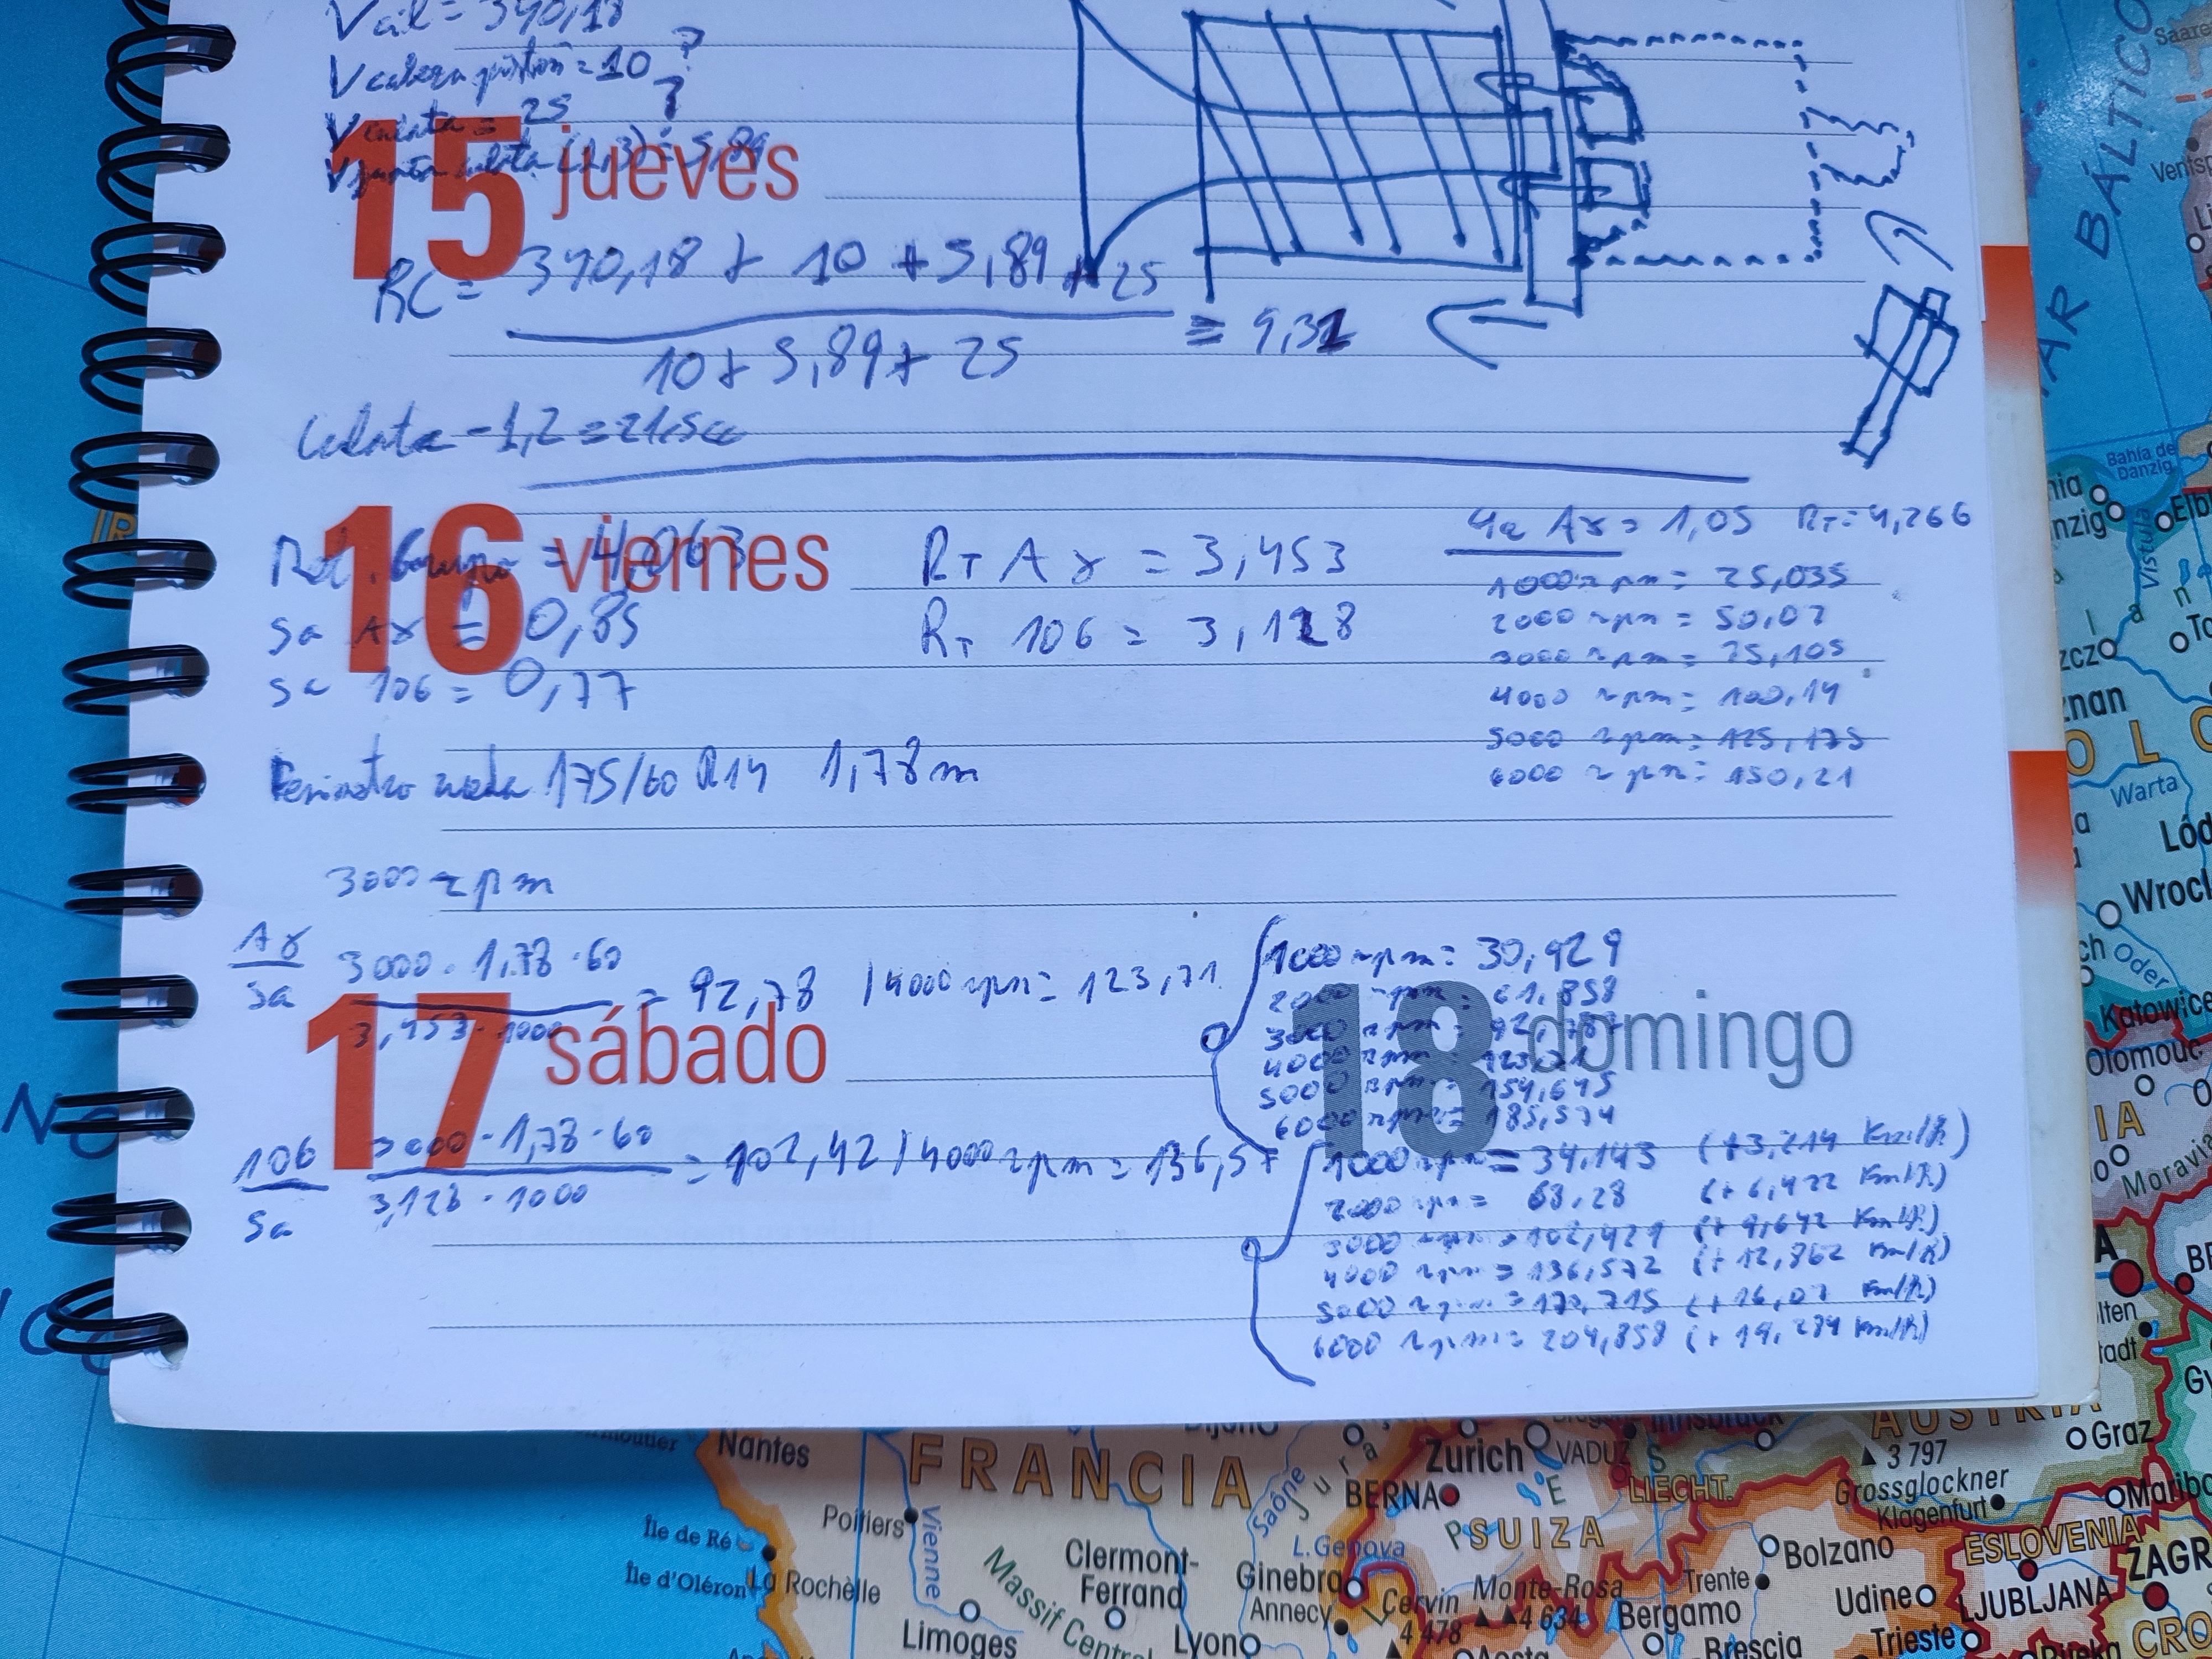 Vcil = 340,18
V cabeza pistón = 10 ?
V culata = 25 ?
V junta culata (1,3) = 5,89
15 jueves
RC = 340,18 + 10 + 5,89 + 25
10 + 5,89 + 25
= 9,32
Culata -1,2 = 21,5cc
16 viernes
Rel. Grupo = 4,063
5a Ax = 0,85
5a 106 = 0,77
RT Ax = 3,453
RT 106 = 3,128
4a Ax = 1,05 RT = 4,266
1000 rpm = 25,035
2000 rpm = 50,07
3000 rpm = 75,105
4000 rpm = 100,14
5000 rpm = 125,175
6000 rpm = 150,21
Perimetro rueda 175/60 R14 1,78m
3000 rpm
Ax
5a
3000 · 1,78 · 60
3,453 · 1000
= 92,78 / 4000 rpm = 123,71
17 sábado
106
5a
3000 · 1,78 · 60
3,128 · 1000
= 102,42 / 4000 rpm = 136,57
18 domingo
1000 rpm = 30,929
2000 rpm = 61,858
3000 rpm = 92,787
4000 rpm = 123,71
5000 rpm = 154,645
6000 rpm = 185,574
1000 rpm = 34,143 (+3,214 Km/h)
2000 rpm = 68,28 (+6,422 Km/h)
3000 rpm = 102,429 (+9,642 Km/h)
4000 rpm = 136,572 (+12,862 Km/h)
5000 rpm = 170,715 (+16,07 Km/h)
6000 rpm = 204,858 (+19,284 Km/h)
MAR BÁLTICO
Bahía de Danzig
Vistula
Warta
Wrocł
Oder
Katowice
Olomouc
Moravia
AUSTRIA
Graz
3 797
Grossglockner
Klagenfurt
Nantes
FRANCIA
Poitiers
Vienne
Île de Ré
Île d'Oléron
La Rochelle
Limoges
Massif Central
Clermont-Ferrand
Lyon
Saône
Jura
Zurich
VADUZ
LIECHT.
Innsbruck
BERNA
SUIZA
L. Genova
Ginebra
Annecy
Cervin
4 478
Monte-Rosa
4 634
Trente
Bolzano
Bergamo
Brescia
Udine
Trieste
ESLOVENIA
LJUBLJANA
ZAGR
Rijeka
CRO